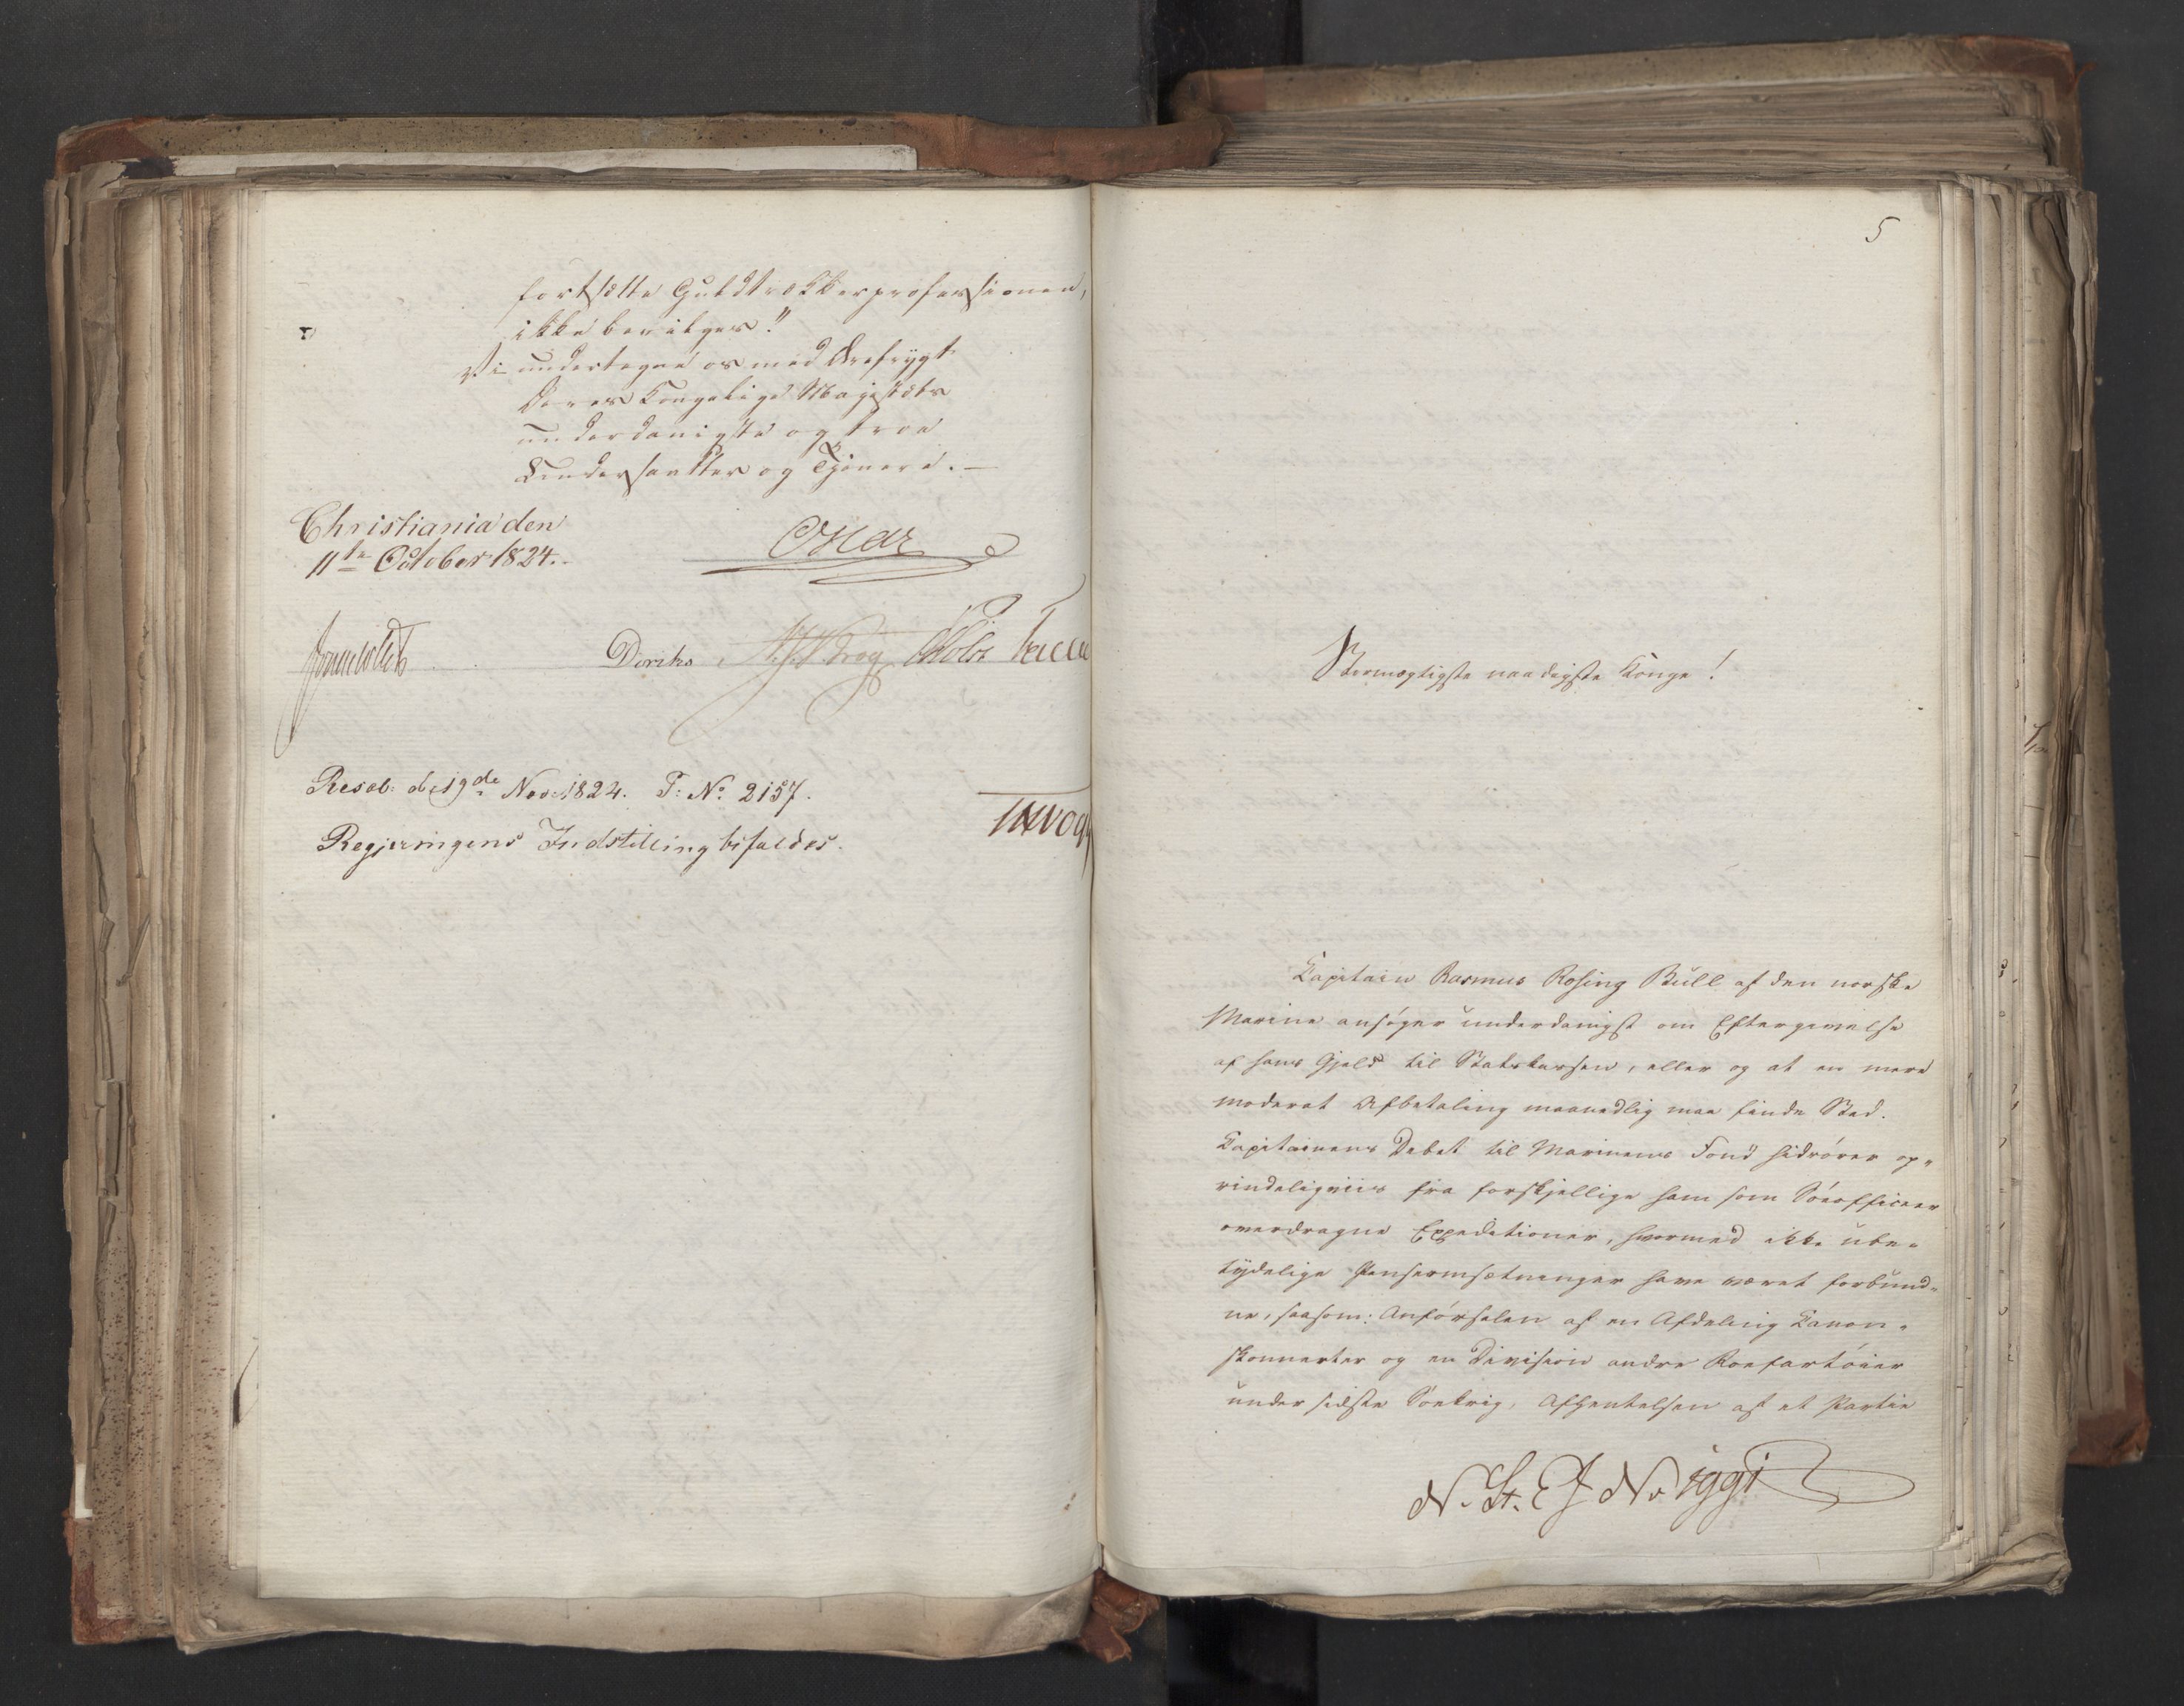 fortsætte Guldtrækkerprofessionen,
ikke bevilges."
Vi undertegne os med Ærefrygt
Deres Kongelige Majestæts
underdanigste og troe
Undersaatter og Tjenere. —
Christiania den
11te October 1824.
Oscar
Sommerhielm Diriks Krog Holst
Resol: d. 19de Nov: 1824. P: No 2157.
Regjeringens Indstilling bifaldes.
5
Stormægtigste naadigste Konge!
Capitain Rasmus Rosing Bull af den norske
Marine ansøger underdanigst om Eftergivelse
af hans Gjeld til Statskassen, eller og at en mere
moderat Afbetaling maanedlig maa finde Sted.
Capitainens Debet til Marinens Fond hidrører op-
rindeligviis fra forskjellige ham som Søeofficeer
overdragne Expeditioner, hvormed ikke ube-
tydelige Pengeomsætninger have været forbund-
ne, saasom: Anførselen af en Afdeling Canon-
skonnerter og en Division andre Roefartøier
under sidste Søekrig, Afhentelsen af et Partie
N. St. E